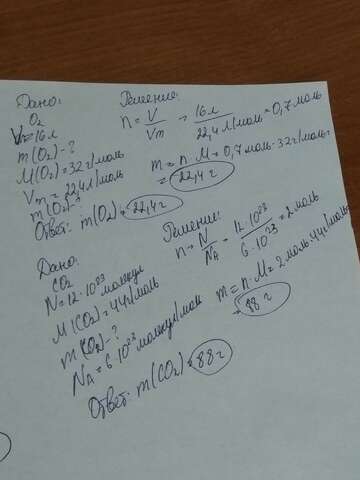 Дано:
O₂
V=16л
m(O₂)-?
M(O₂)=32г/моль
Vm=22,4л/моль
m(O₂)-?
Решение:
n=V/Vm = 16л/22,4л/моль=0,7моль
m=n·M=0,7моль·32г/моль=
=22,4г
Ответ: m(O₂)=22,4г
Дано:
CO₂
N=12·10²³молекул
M(CO₂)=44г/моль
m(CO₂)-?
NA=6·10²³молекул/моль
Решение:
n=N/NA=12·10²³/6·10²³=2моль
m=n·M=2моль·44г/моль=
=88г
Ответ: m(CO₂)=88г